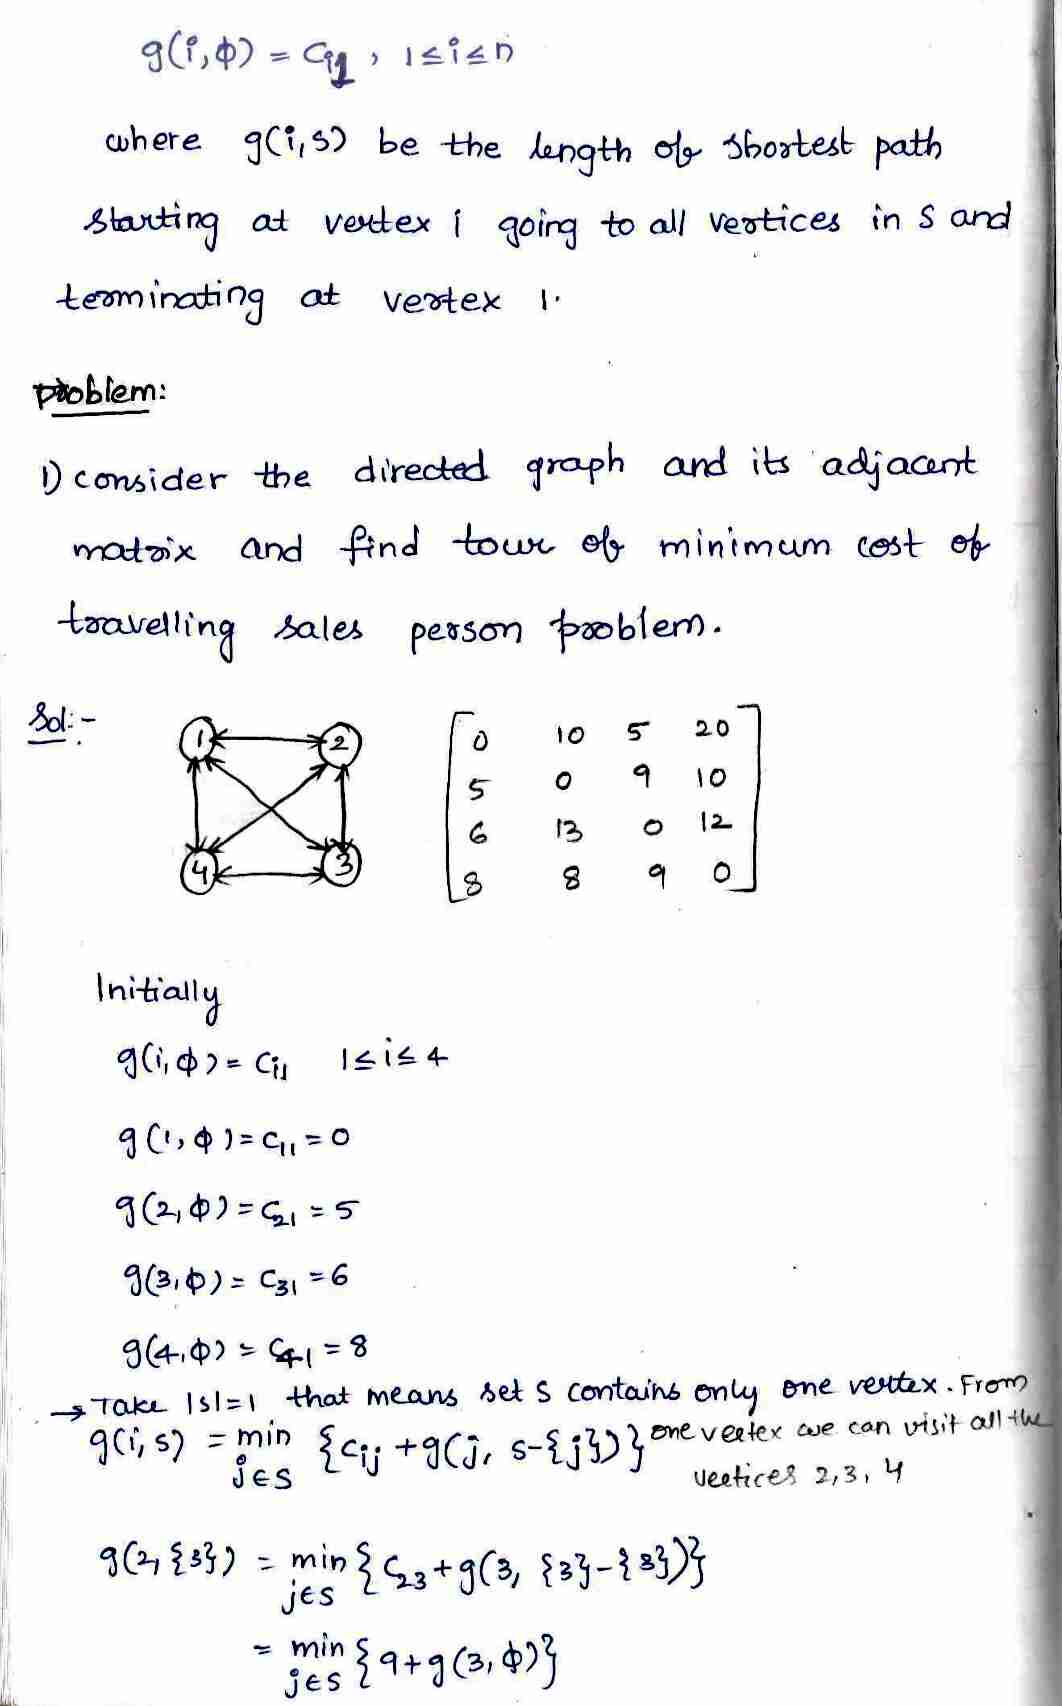 g(i,ϕ) = Ci1, 1≤i≤n
where g(i,s) be the length of shortest path
starting at vertex i going to all vertices in S and
terminating at vertex 1.
problem:
1) consider the directed graph and its adjacent
matrix and find tour of minimum cost of
travelling sales person problem.
Sol:-
1 2
4 3
0 10 5 20
5 0 9 10
6 13 0 12
8 8 9 0
Initially
g(i,ϕ) = Ci1 1≤i≤4
g(1,ϕ) = C11 = 0
g(2,ϕ) = C21 = 5
g(3,ϕ) = C31 = 6
g(4,ϕ) = C41 = 8
→ Take |s|=1 that means set S contains only one vertex. From
one vertex we can visit all the
vertices 2,3,4
g(i,s) = min {Cij + g(j, s-{j})}
j∈S
g(2,{3}) = min {C23 + g(3, {3}-{3})}
j∈S
= min {9+g(3,ϕ)}
j∈S